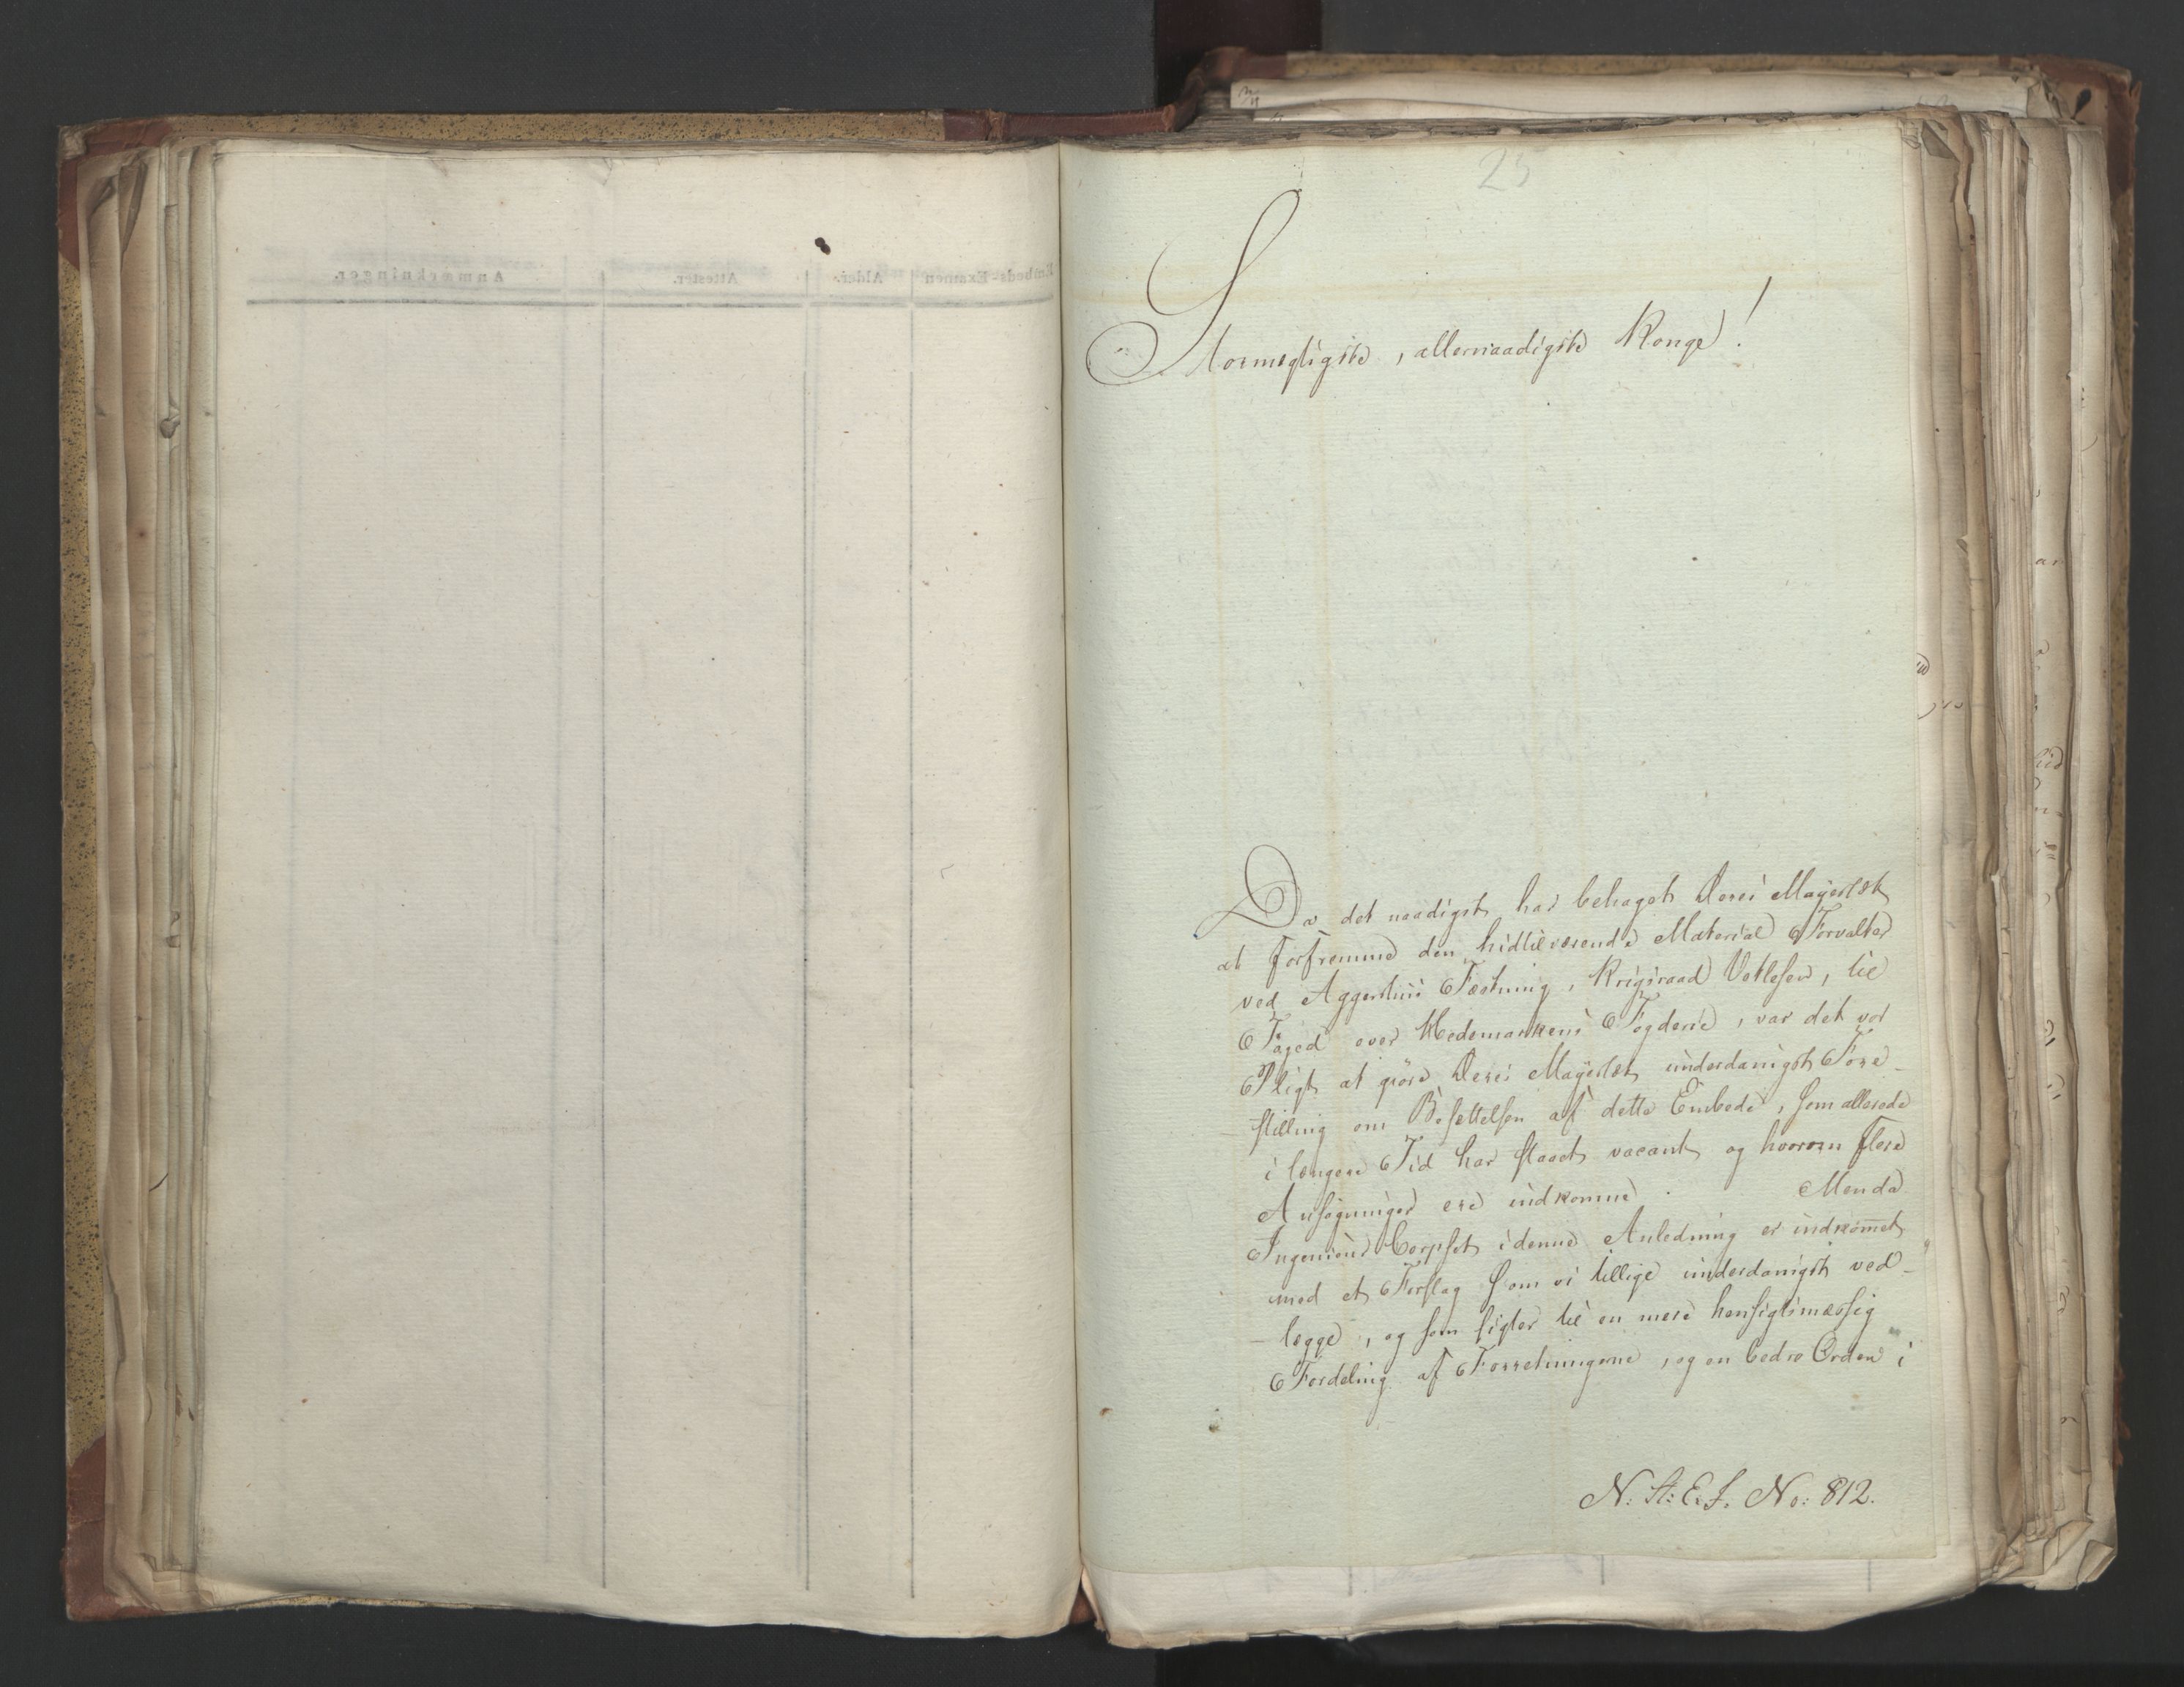 25
Stormegtigste, allernaadigste Konge!
Da det naadigst har behaget Deres Mayestæt
at forfremme den hidtilværende Material Forvalter
ved Aggershuus Fæstning, Krigsraad Vetlesen, til
Foged over Hedemarkens Fogderie, var det vor
Pligt at giöre Deres Mayestæt underdanigst Fore-
stilling om Besættelsen af dette Embede, som allerede
i længere Tid har staaet vacant og hvorom flere
Ansøgninger ere indkomne. Men da
Ingenieur Corpset i denne Anledning er indkom̅et
med et Forslag som vi tillige underdanigst ved-
-lægge, og som sigter til en mere hensigtsmæssig
Fordeling af Forretningerne, og en bedre Orden i
N: St: E. J. No: 812.
Embeds-Examen
Alder.
Attester.
Anmærkninger.